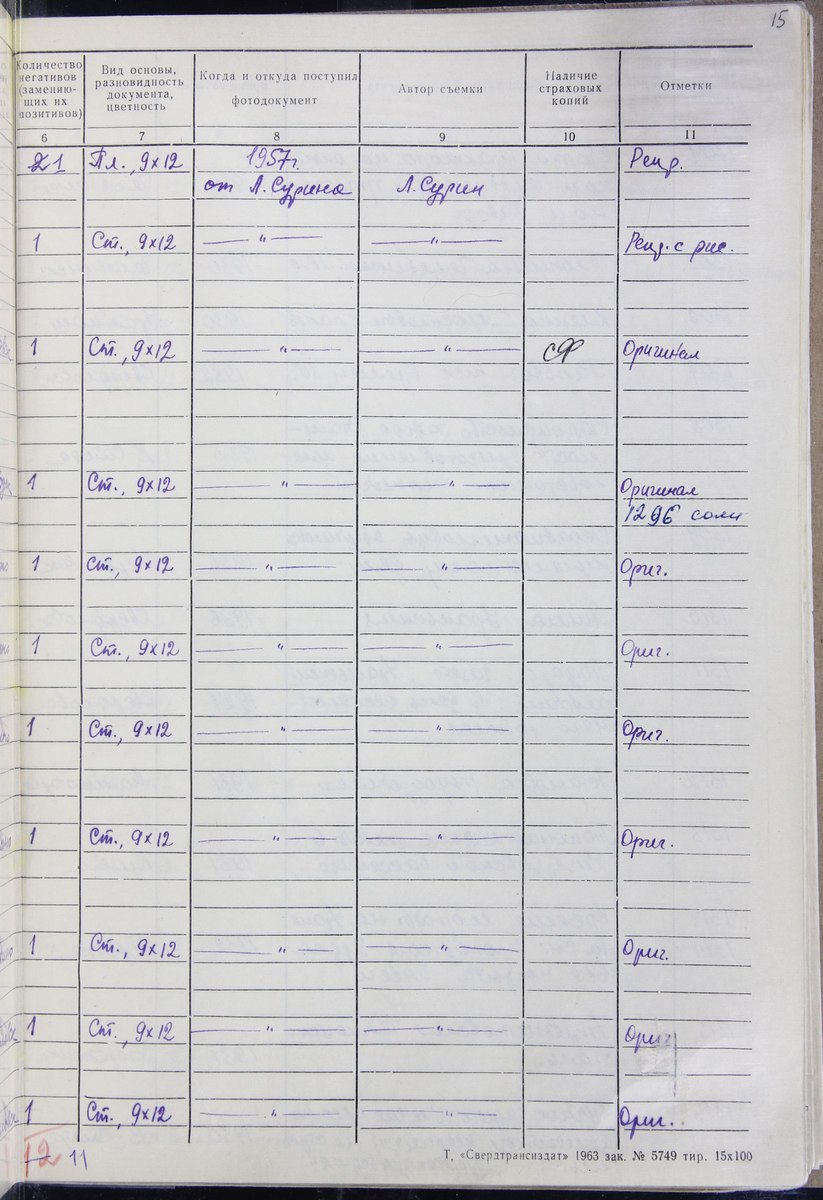 15
Количество негативов (заменяющих их позитивов)
Вид основы, разновидность документа, цветность
Когда и откуда поступил фотодокумент
Автор съемки
Наличие страховых копий
Отметки
6 7 8 9 10 11
1 Пл., 9х12 1957г. Репр.
от Л. Сурина Л. Сурин
1 Ст., 9х12 — " — — " — Репр. с рис.
1 Ст., 9х12 — " — — " — СФ Оригинал
1 Ст., 9х12 — " — — " — Оригинал
1296 соли
1 Ст., 9х12 — " — — " — Ориг.
1 Ст., 9х12 — " — — " — Ориг.
1 Ст., 9х12 — " — — " — Ориг.
1 Ст., 9х12 — " — — " — Ориг.
1 Ст., 9х12 — " — — " — Ориг.
1 Ст., 9х12 — " — — " — Ориг
1 Ст., 9х12 — " — — " — Ориг.
12 11
Т, «Свердтрансиздат» 1963 зак. № 5749 тир. 15х100